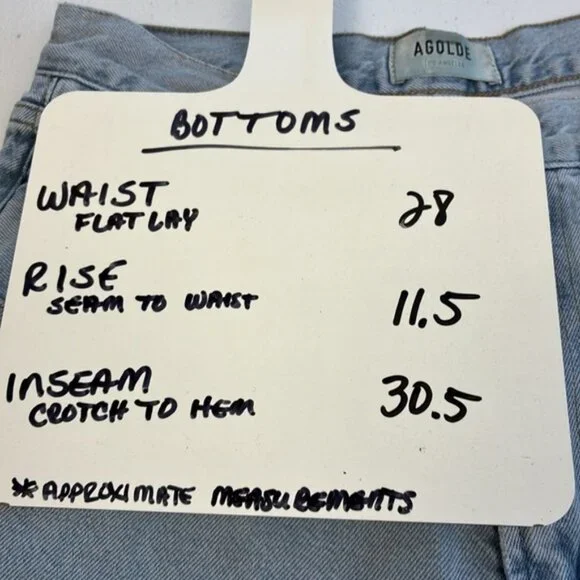 AGOLDE
LOS ANGELES
BOTTOMS
WAIST 28
FLAT LAY
RISE 11.5
SEAM TO WAIST
INSEAM 30.5
CROTCH TO HEM
*APPROXIMATE MEASUREMENTS